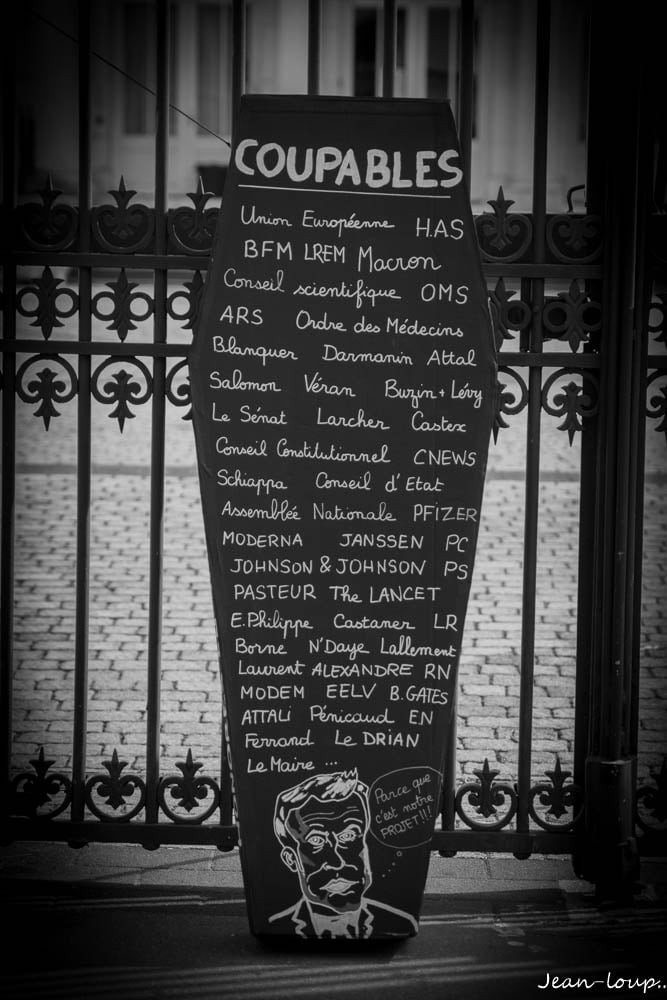 COUPABLES
Union Européenne H.A.S
BFM LREM Macron
Conseil scientifique OMS
ARS Ordre des Médecins
Blanquer Darmanin Attal
Salomon Véran Buzin+Lévy
Le Sénat Larcher Castex
Conseil Constitutionnel CNEWS
Schiappa Conseil d'Etat
Assemblée Nationale PFIZER
MODERNA JANSSEN PC
JOHNSON & JOHNSON PS
PASTEUR The LANCET
E.Philippe Castaner LR
Borne N'Daye Lallement
Laurent ALEXANDRE RN
MODEM EELV B.GATES
ATTALI Pénicaud EN
Ferrand Le DRIAN
Le Maire ...
Parce que
c'est notre
PROJET!!!
Jean-loup..